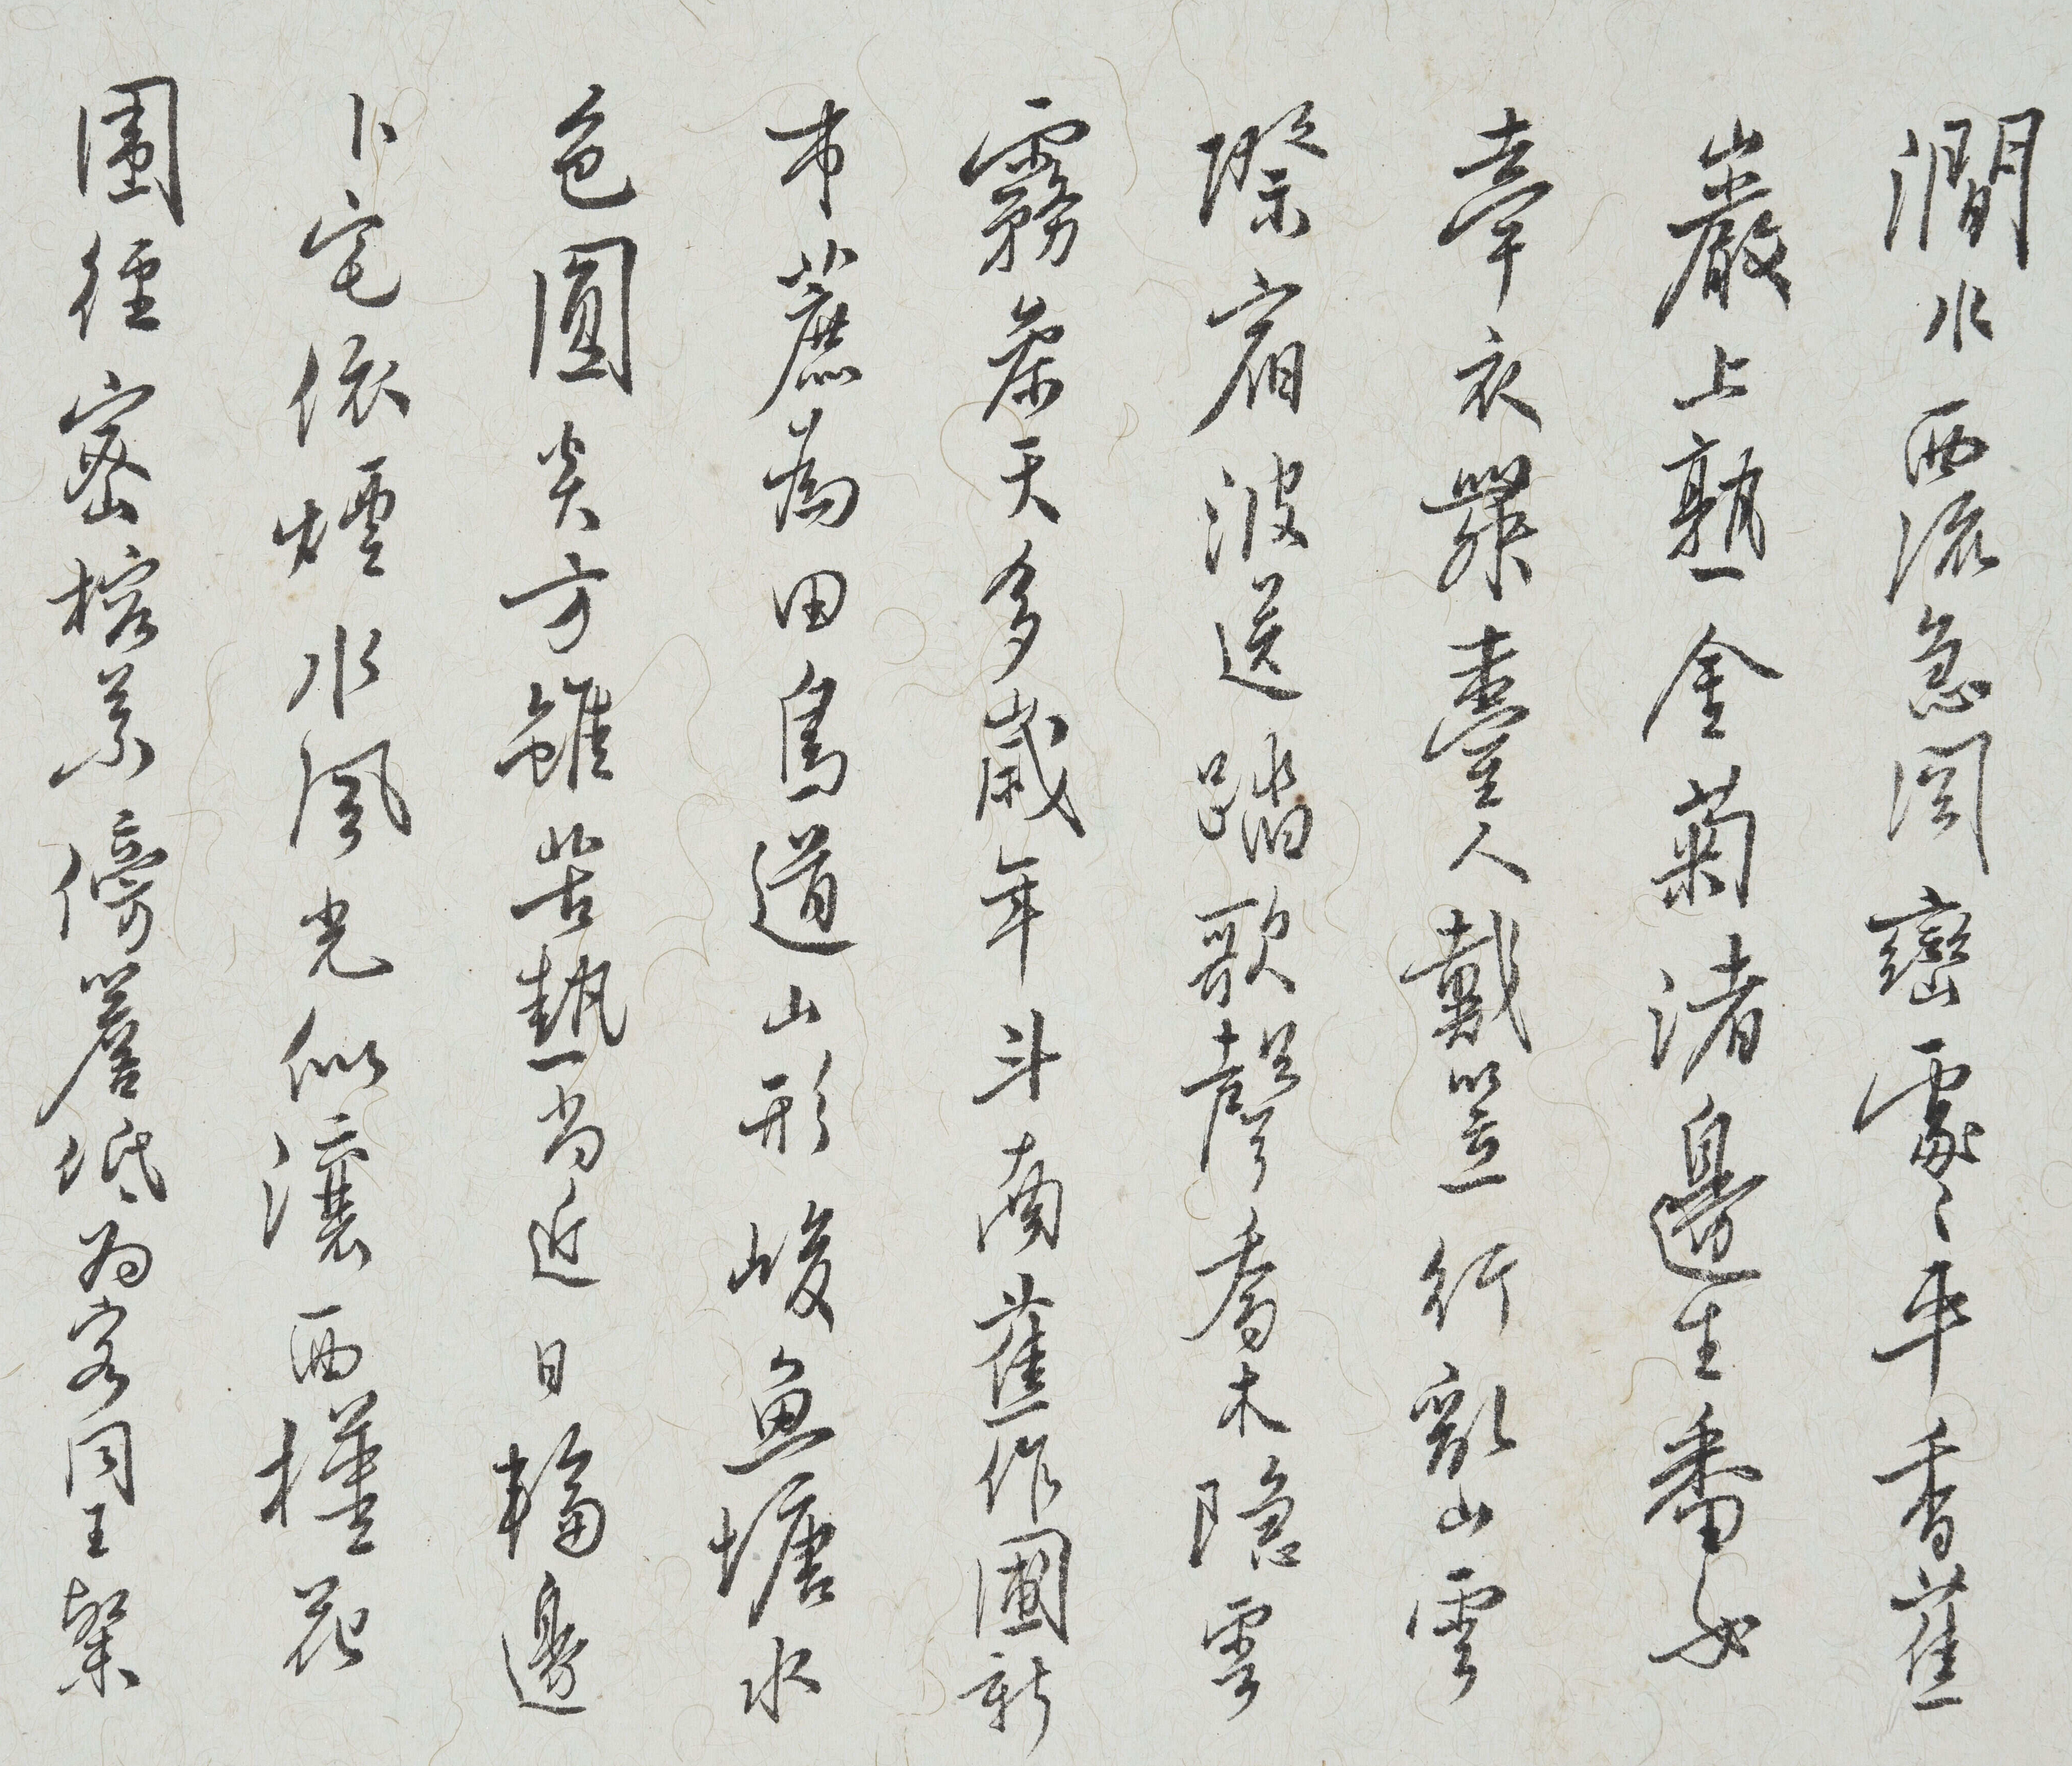 澗水西流急岡巒處〻平香蕉
巖上熟金菊渚邊生番女
牽衣翠臺人戴笠行亂山雲
際宿波送踏歌聲喬木隱雲
霧荼天多歲年斗南舊作國新
市蔗為田鳥道山形峻魚塘水
色圓炎方雖苦熱尚近日輪邊
卜宅依煙水風光似瀼西槿花
圍徑密榕葉傍簷低為客同王粲